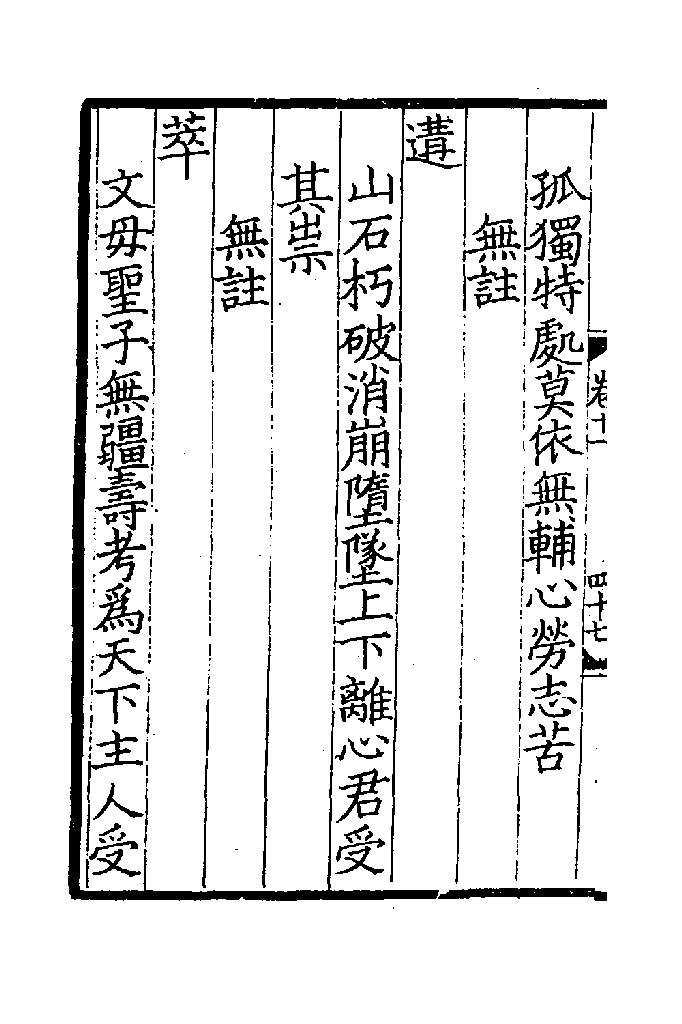 卷十一
四十七
孤獨特處莫依無輔心勞志苦
無註
遘
山石朽破消崩墮墜上下離心君受
其祟
無註
萃
文毋聖子無疆壽考爲天下主人受